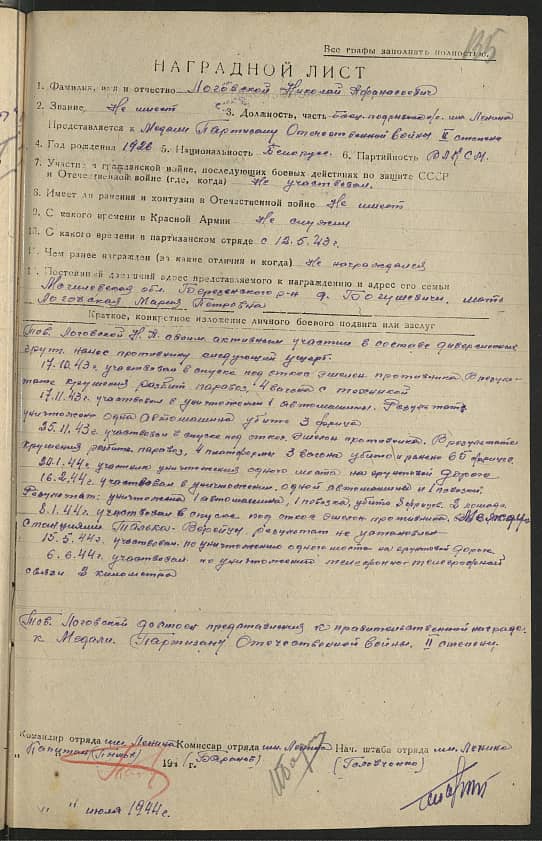 Все графы заполнять полностью.
НАГРАДНОЙ ЛИСТ
1. Фамилия, имя и отчество Логовской Николай Афанасьевич
2. Звание Не имеет 3. Должность, часть боец-подрывник о/о. им Ленина
Представляется к Медали Партизану Отечественной войны II степени
4. Год рождения 1926 5. Национальность Белорус. 6. Партийность ВЛКСМ.
7. Участие в гражданской войне, последующих боевых действиях по защите СССР
и Отечественной войне (где, когда) Не участвовал.
8. Имеет ли ранения и контузии в Отечественной войне Не имеет
9. С какого времени в Красной Армии Не служил
10. С какого времени в партизанском отряде с 12.5.43г.
11. Чем ранее награжден (за какие отличия и когда) Не награждался
12. Постоянный домашний адрес представляемого к награждению и адрес его семьи
Могилевская обл. Березенского р-н д. Богушевичи. мать
Логовская Мария Петровна
Краткое, конкретное изложение личного боевого подвига или заслуг
Тов. Логовской Н.А. своим активным участием в составе диверсионных
групп. нанес противнику следующий ущерб.
17.10.43г. участвовал в спуске под откос эшелон. противника. В результате
крушения разбит паровоз, 4 вагона с техникой
17.11.43г. участвовал в уничтожении 1 автомашины. Результат:
уничтожена одна автомашина убито 3 фрица
25.11.43г. участвовал в спуске под откос эшелон противника. В результате
крушения разбит. паровоз, 4 платформы 3 вагона убито и ранено 65 фрицев.
20.1.44г. участвов уничтожения одного моста на грунтовой дороге
16.2.44г участвовал в уничтожении одной автомашины и 1 повозки.
Результат: уничтожена 1 автомашина, 1 повозка, убито фрицев. 2 лошади.
8.1.44г участвовал в спуске под откос эшелон противника. Между
станциями Талька-Верейцы. результат не установлен
15.5.44г. участвовал по уничтожению одного моста на грунтовой дороге
6.6.44г участвовал по уничтожению телефонно-телеграфной
связи 2 километра
Тов. Логовской достоен представления к правительственной награде.
к Медали. Партизану Отечественной войны. II степени.
Командир отряда им. Ленина Комиссар отряда им. Ленина Нач. штаба отряда им. Ленина
Капитан 194 г. (Баранов) (Головченко)
" " июля 1944г.